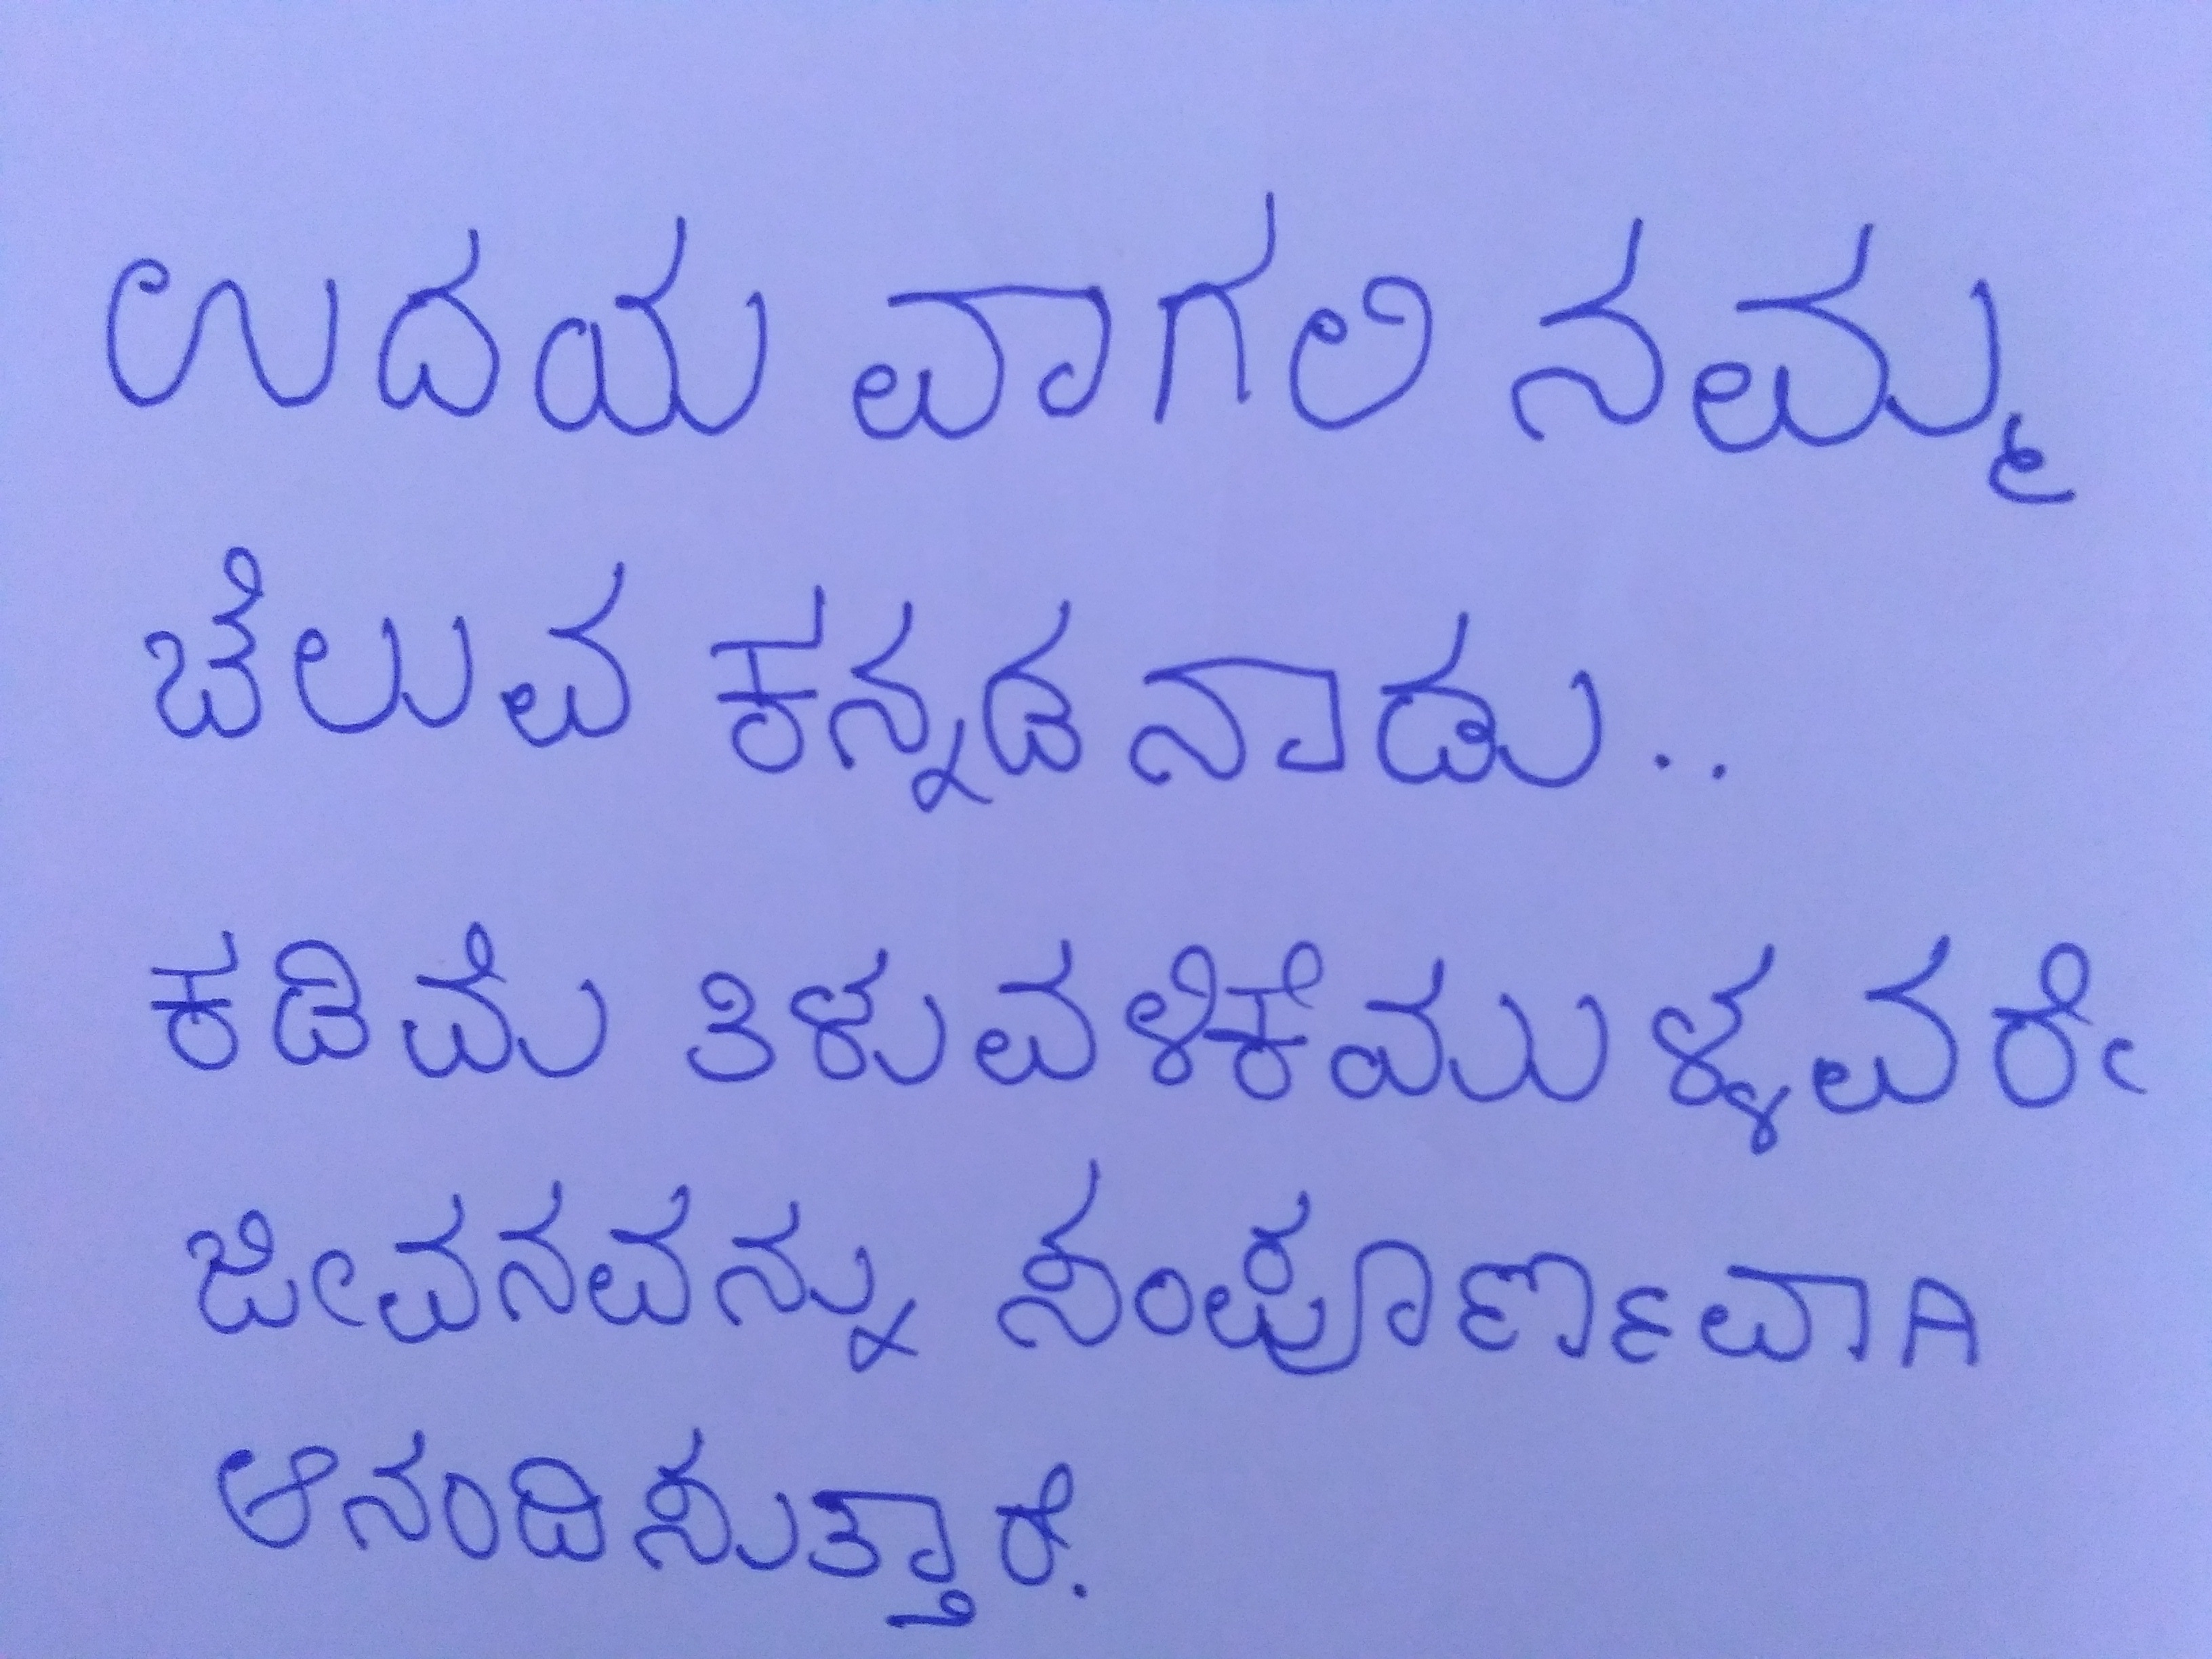 ಉದಯ ವಾಗಲಿ ನಮ್ಮ
ಚೆಲುವ ಕನ್ನಡ ನಾಡು..
ಕಡಿಮೆ ತಿಳುವಳಿಕೆಮುಳ್ಳವರೇ
ಜೀವನವನ್ನು ಸಂಪೂರ್ಣವಾಗಿ
ಆನಂದಿಸುತ್ತಾರೆ.